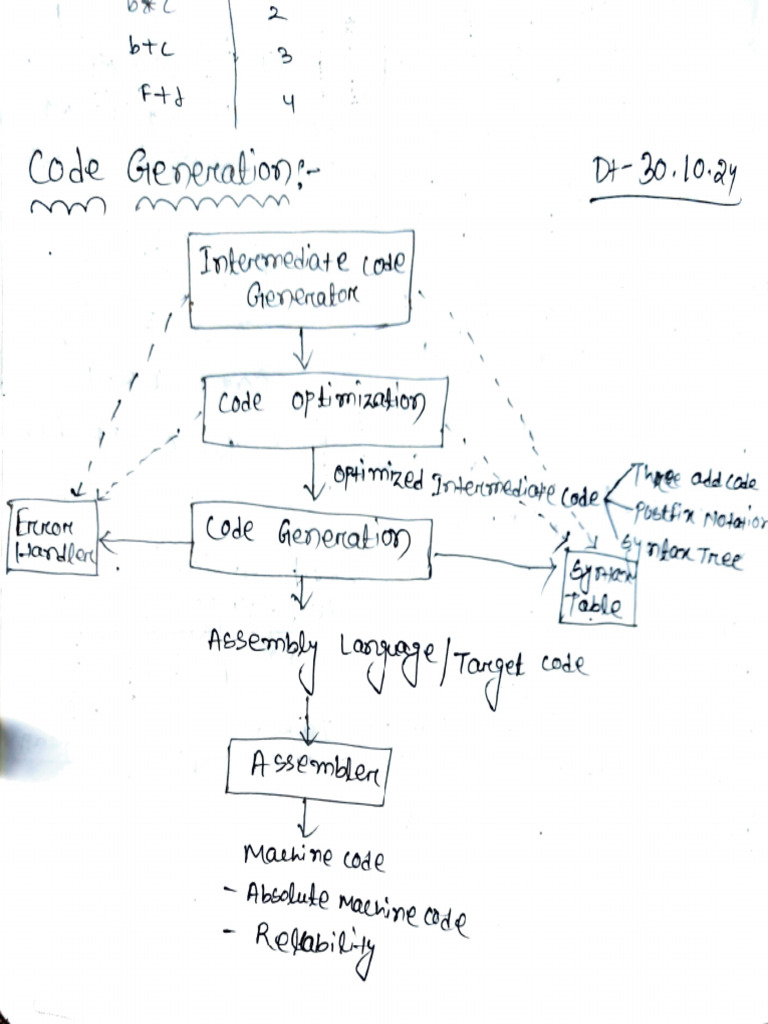 b*c 2
b+c 3
F+d 4
Code Generation:-
Dt- 30.10.24
Intermediate code
Generator
Code Optimization
Optimized Intermediate Code
Three add code
Postfix Notation
Syntax Tree
Error
Handler
Code Generation
Syntax
Table
Assembly Language/Target code
Assembler
Machine code
- Absolute Machine code
- Reliability